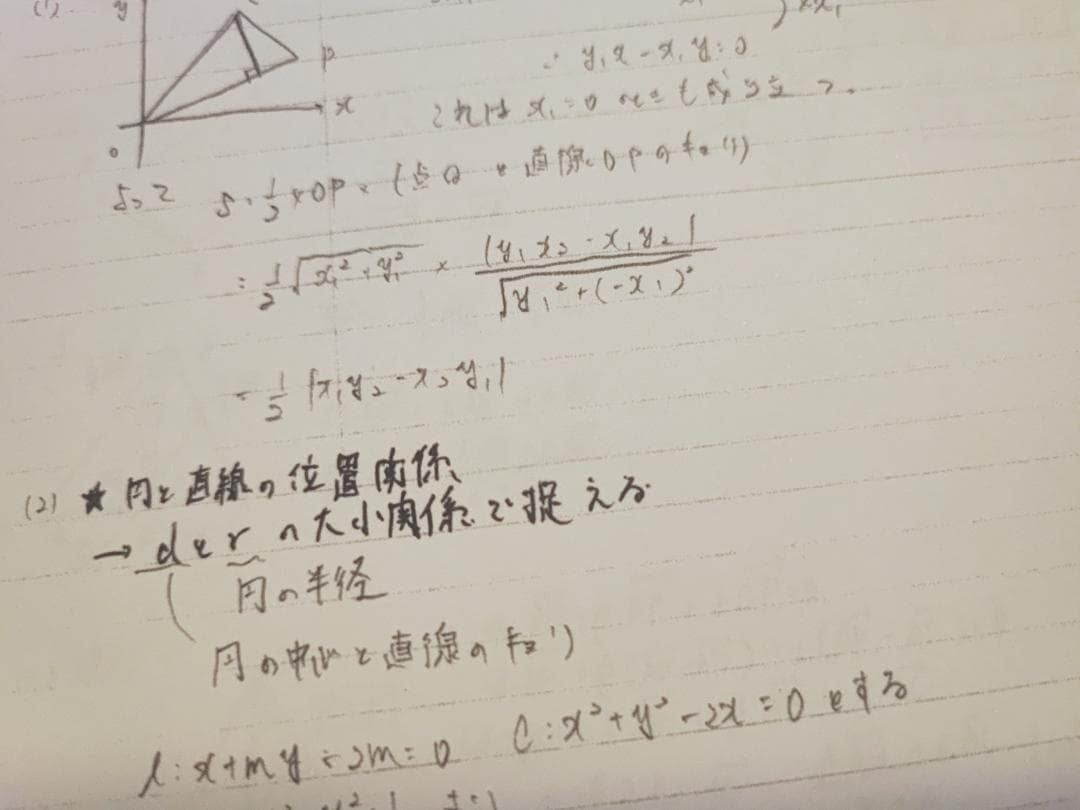 (1)
y
P
x
0
∴ y₁x - x₁y = 0
これは x₁=0 のときも成り立つ.
よって S = 1/2 × OP × (点Q と 直線OP のキョリ)
= 1/2 √(x₁² + y₁²) × |y₁x₂ - x₁y₂| / √(y₁² + (-x₁)²)
= 1/2 |x₁y₂ - x₂y₁|
(2) ★ 円と直線の位置関係
→ d と r の大小関係で捉える
円の半径
円の中心と直線のキョリ
l: x+my-2m=0 C: x²+y²-2x=0 とする